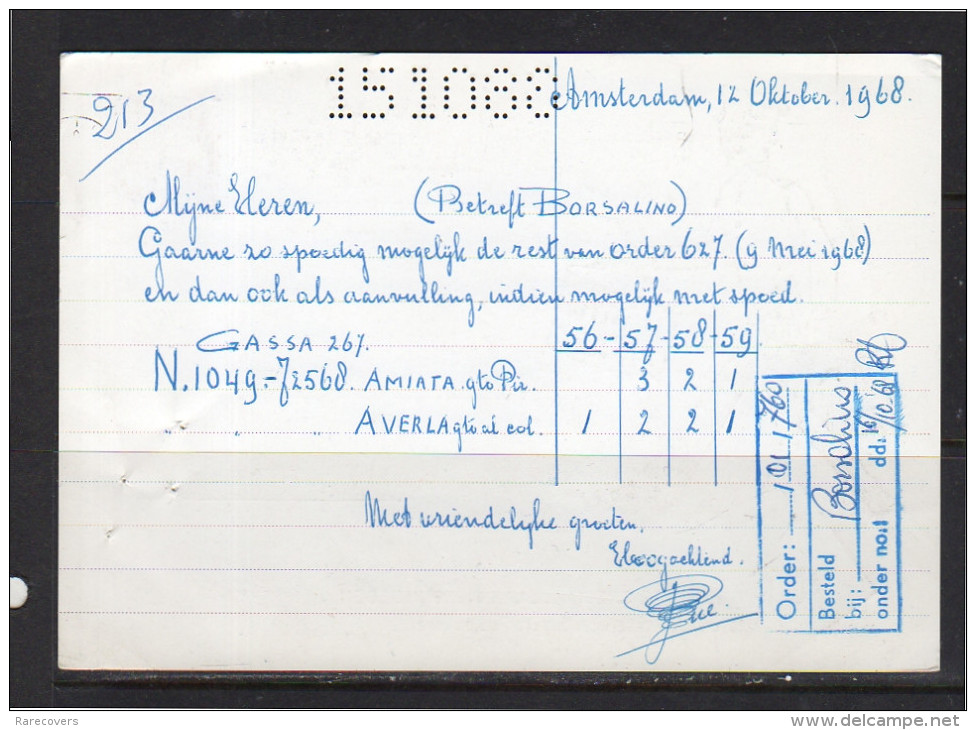 213
151068
Amsterdam, 12 Oktober. 1968.
Mijne Heren, (Betreft BORSALINO)
Gaarne zo spoedig mogelijk de rest van order 627. (9 Mei 1968)
en dan ook als aanvulling, indien mogelijk met spoed.
GASSA 267. 56 - 57 - 58 - 59
N. 1049.-72568. AMIATA. gto Pir. 3 2 1
" " " AVERLA gto al col. 1 2 2 1
Met vriendelijke groeten,
Hoogachtend.
Order: 101.1760
Besteld
bij: Borsalino
onder no: dd: 16/10 '68
Rarecovers
delcampe.net